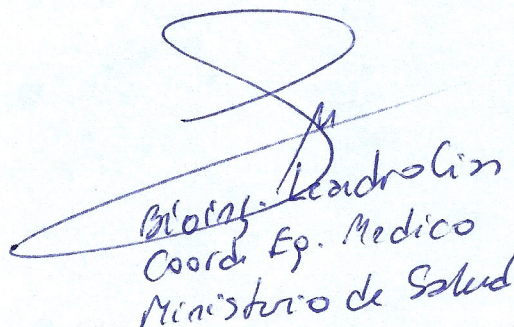 Bioing. Leandro
Coord. Eq. Medico
Ministerio de Salud